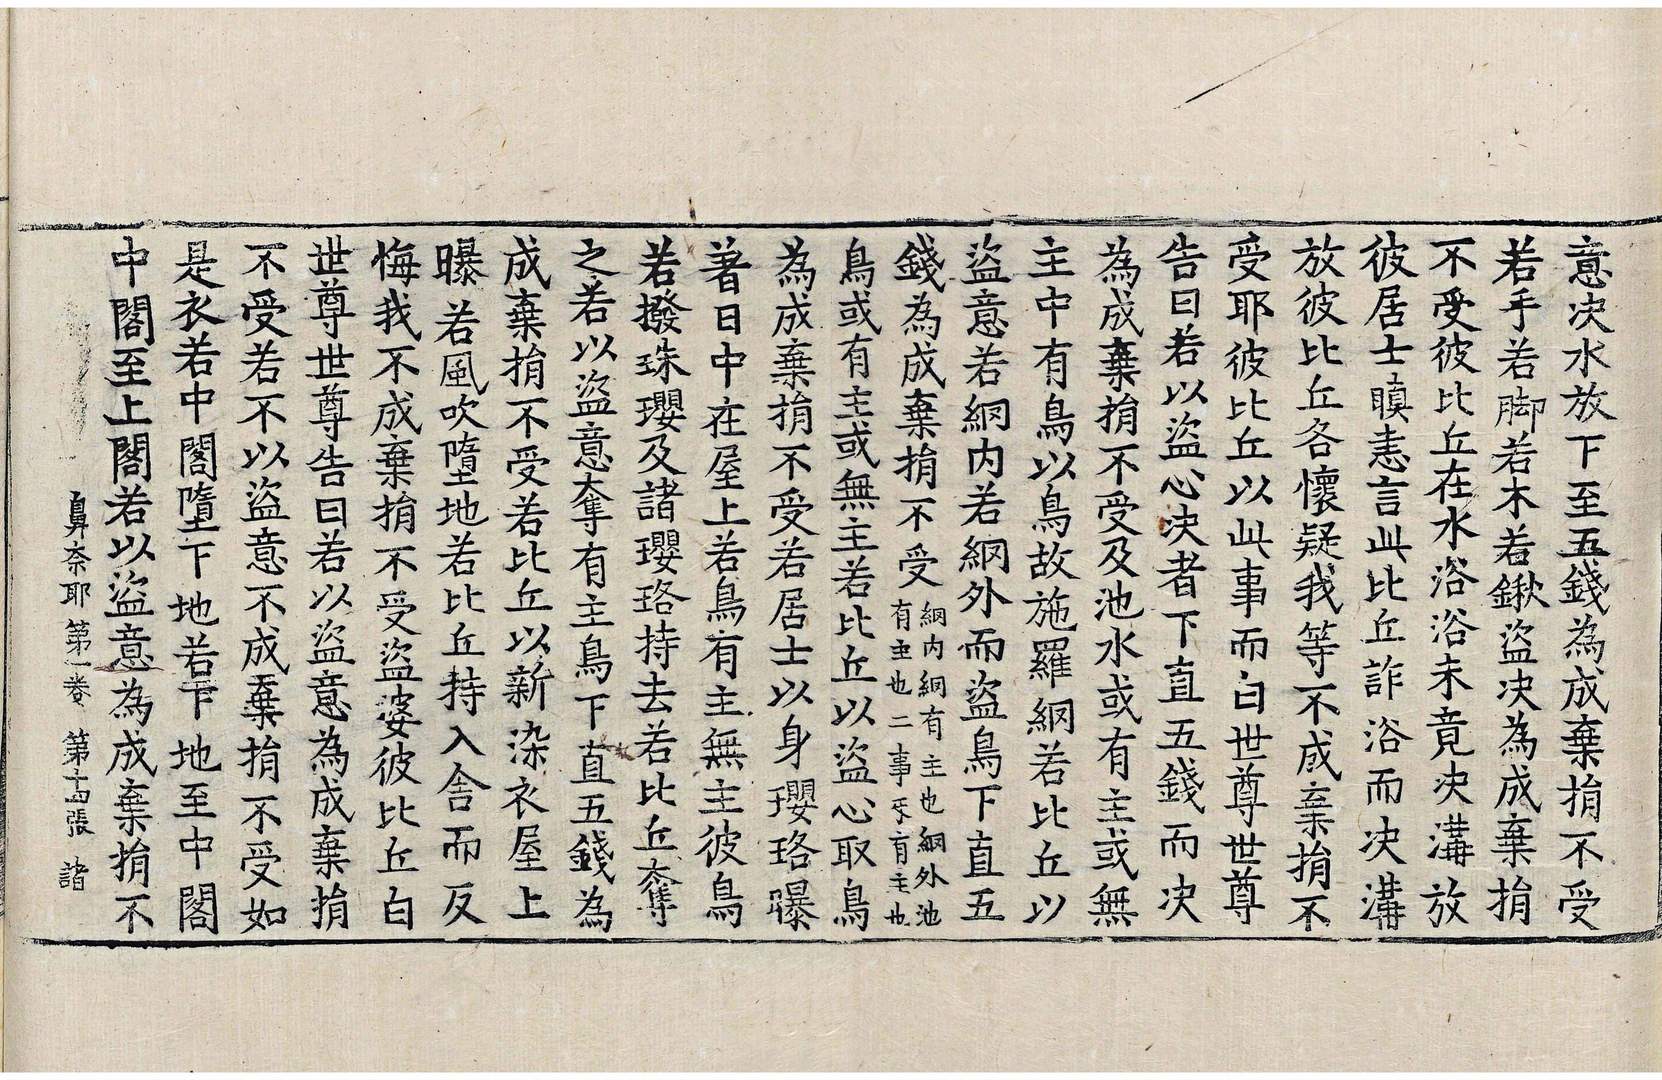 意决水放下至五錢為成棄捐不受
若手若脚若木若鍬盜决為成棄捐
不受彼比丘在水浴浴未竟决溝放
彼居士瞋恚言此比丘詐浴而决溝
放彼比丘各懷疑我等不成棄捐不
受耶彼比丘以此事而白世尊世尊
告曰若以盜心决者下直五錢而决
為成棄捐不受及池水或有主或無
主中有鳥以鳥故施羅網若比丘以
盜意若網內若網外而盜鳥下直五
錢為成棄捐不受網内網有主也網外池有主也二事不有主也
鳥或有主或無主若比丘以盜心取鳥
為成棄捐不受若居士以身瓔珞曝
著日中在屋上若鳥有主無主彼鳥
若撥珠瓔及諸瓔珞持去若比丘奪
之若以盜意奪有主鳥下直五錢為
成棄捐不受若比丘以新染衣屋上
曝若風吹墮地若比丘持入舍而反
悔我不成棄捐不受盜婆彼比丘白
世尊世尊告曰若以盜意為成棄捐
不受若不以盜意不成棄捐不受如
是衣若中閣墮下地若下地至中閣
中閣至上閣若以盜意為成棄捐不
鼻奈耶第一卷 第十四張 諸